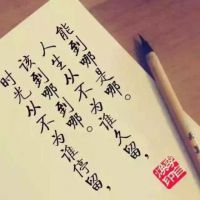 时光从不为谁停留，
该到哪到哪。
人生从不为谁久留，
能到哪是哪。